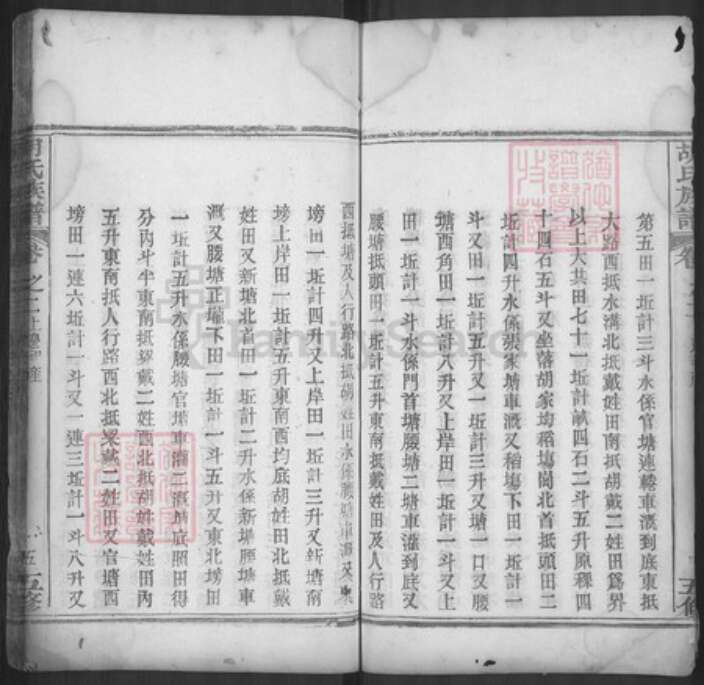 胡氏族譜
卷之二
五修
第五田一坵計三斗水係官塘連轉車溉到底東抵
大路西抵水溝北抵戴姓田南抵胡戴二姓田爲界
以上大共田七十一坵計畝四石二斗五升原稞四
十四石五斗又坐落胡家坳稻塲閣北首抵頭田二
坵計四升水係張家塘車溉又稻塲下田一坵計一
斗又田一坵計五升又一坵計三升又塘一口又腰
塘西角田一坵計八升又上岸田一坵計一斗又上
田一坵計一斗水係門首塘腰塘二塘車灌到底又
腰塘抵頭田一坵計五升東南抵戴姓田及人行路
西抵塘及人行路北抵胡姓田水係腰塘車溉又東
塝田一坵計四升又上岸田一坵計三升又新塘南
塝上岸田一坵計五升東南西均底胡姓田北抵戴
姓田又新塘北首田一坵計二升水係新塘腰塘車
溉又腰塘正壠下田一坵計一斗五升又東北塝田
一坵計五升水係腰塘官塘車灌二溉底照田得
分內斗半東南抵梁戴二姓西北抵胡姓戴姓田內
五升東南抵人行路西北抵梁戴二姓田又官塘西
塝田一連六坵計一斗又一連三坵計一斗八升又
胡氏族譜
卷之二
五修
FamilySearch